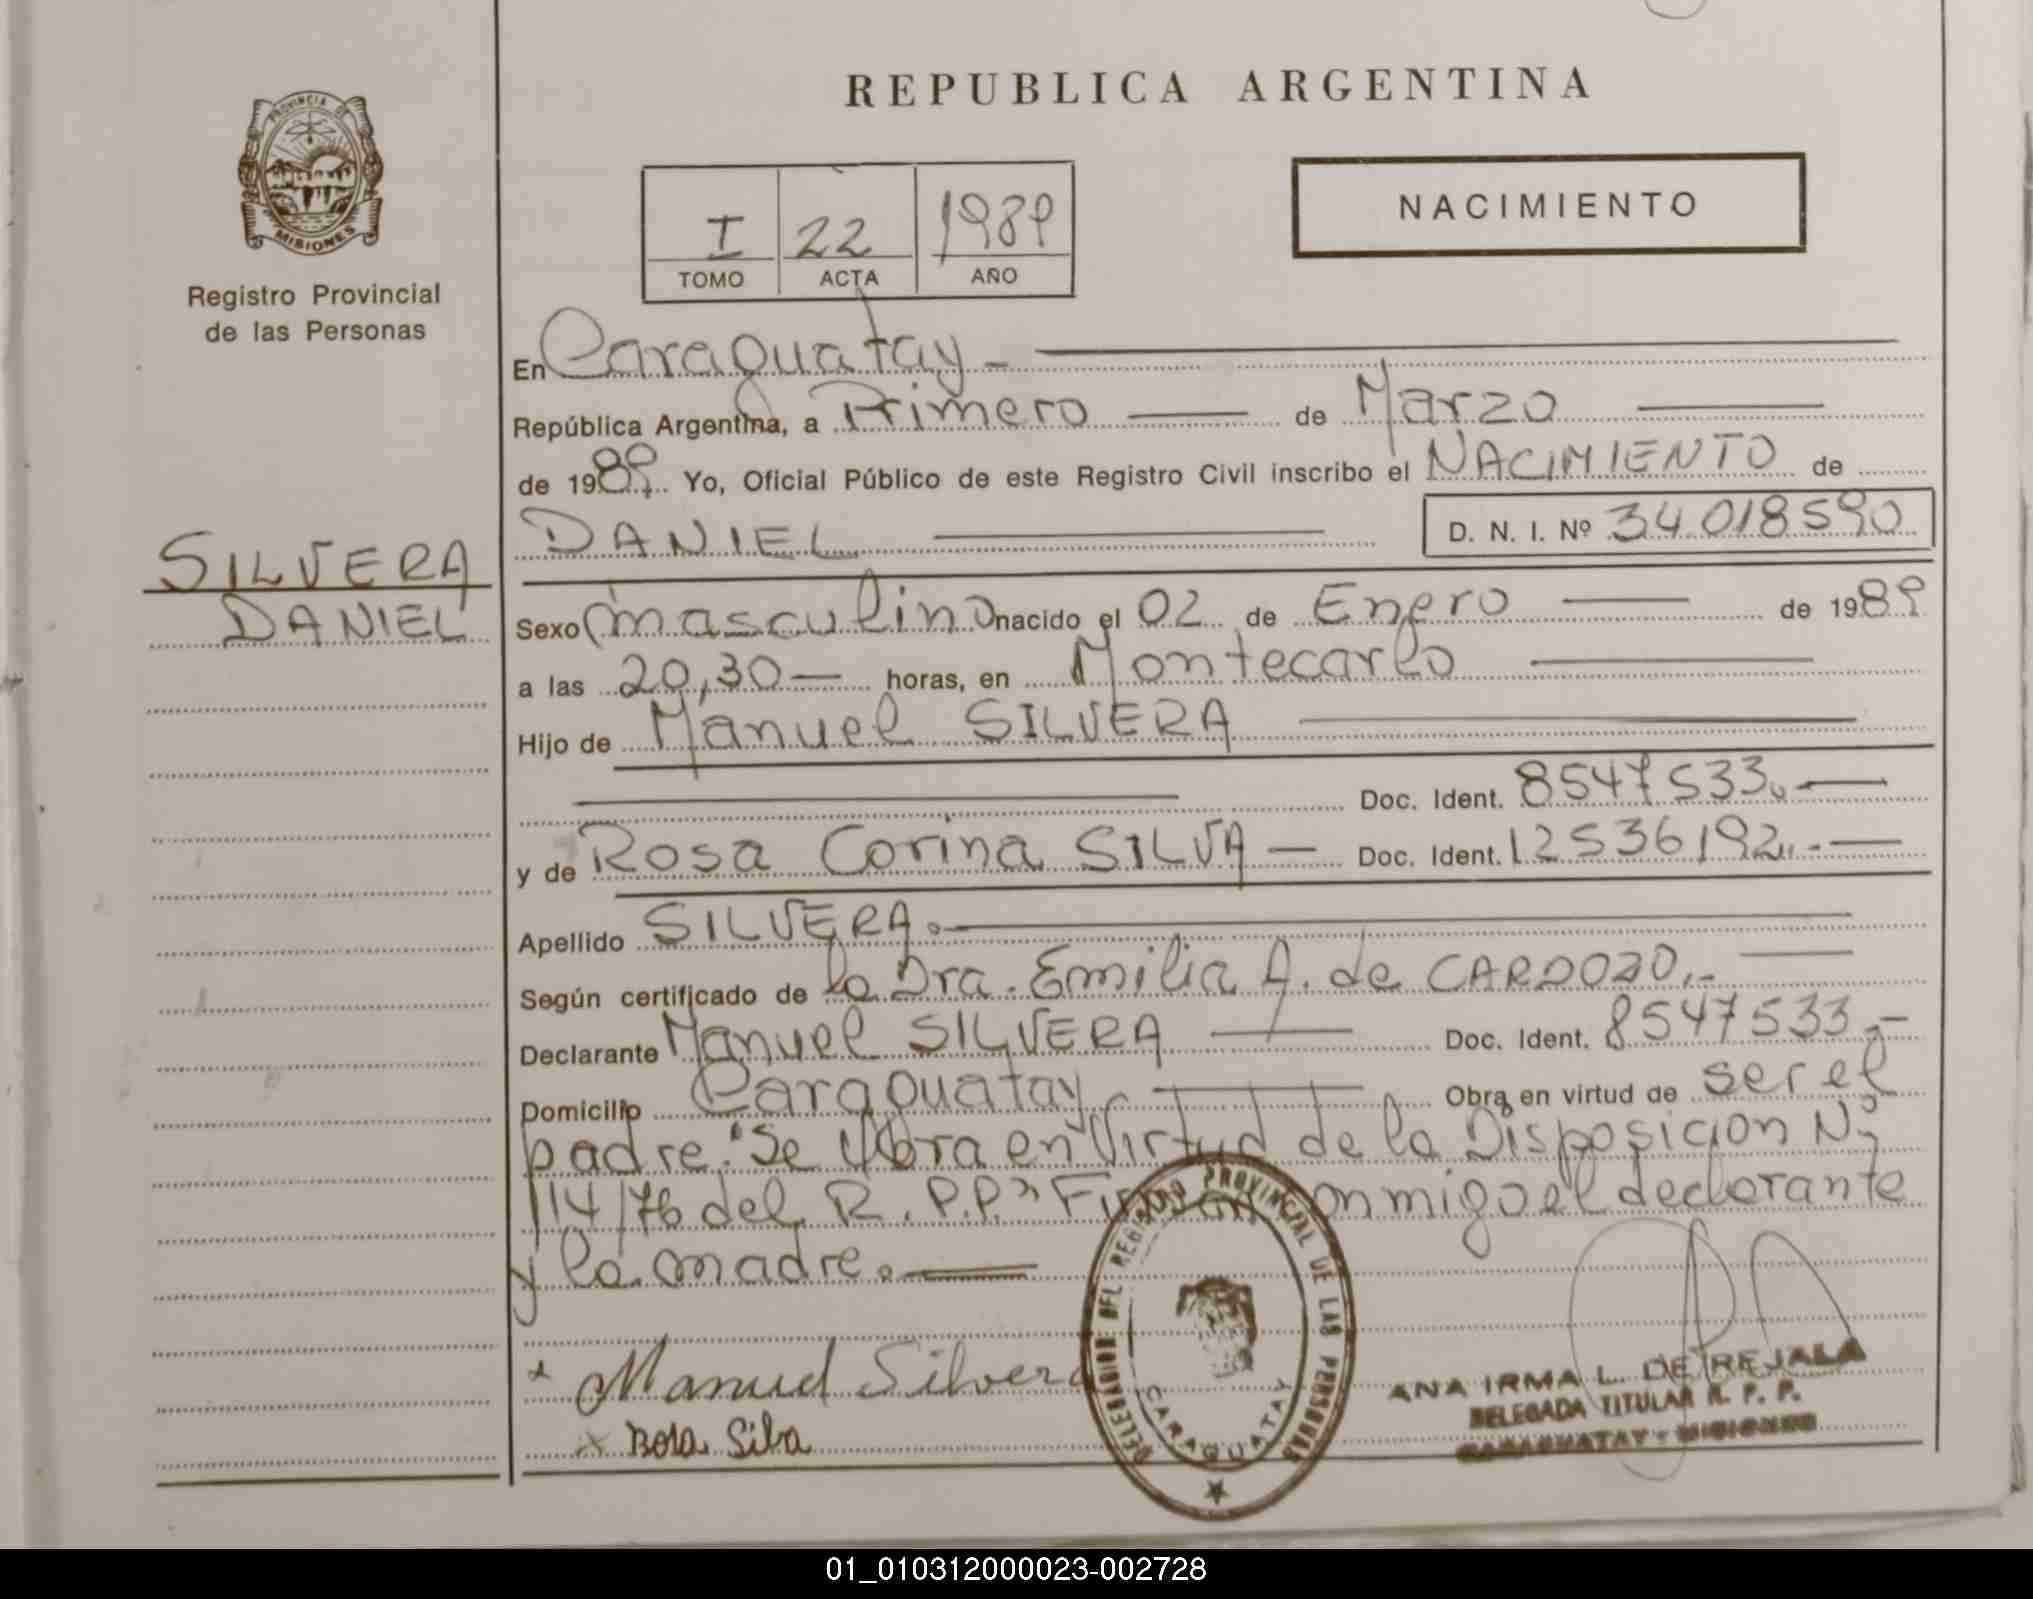 REPUBLICA ARGENTINA
PROVINCIA DE
MISIONES
Registro Provincial
de las Personas
I 22 1989
TOMO ACTA AÑO
NACIMIENTO
En Caraguatay
República Argentina, a Primero de Marzo
de 1989. Yo, Oficial Público de este Registro Civil inscribo el NACIMIENTO de
DANIEL D. N. I. Nº 34.018590
SILVERA
DANIEL
Sexo masculino nacido el 02 de Enero de 1989
a las 20,30 horas, en Montecarlo
Hijo de Manuel SILVERA
Doc. Ident. 8547533
y de Rosa Corina SILVA Doc. Ident. 12536192
Apellido SILVERA.
Según certificado de la Dra. Emilia A. de CARDOZO.-
Declarante Manuel SILVERA Doc. Ident. 8547533.-
Domicilio Caraguatay Obra en virtud de ser el
padre. "Se Obra en Virtud de la Disposicion Nº
114/76 del R. P.P." Firman conmigo el declarante
y la madre.
x Manuel Silvera
x Rosa Silva
DELEGACION DEL REGISTRO PROVINCIAL DE LAS PERSONAS
CARAGUATAY
ANA IRMA L. DE REJALA
DELEGADA TITULAR R. P. P.
CARAGUATAY - MISIONES
01_010312000023-002728